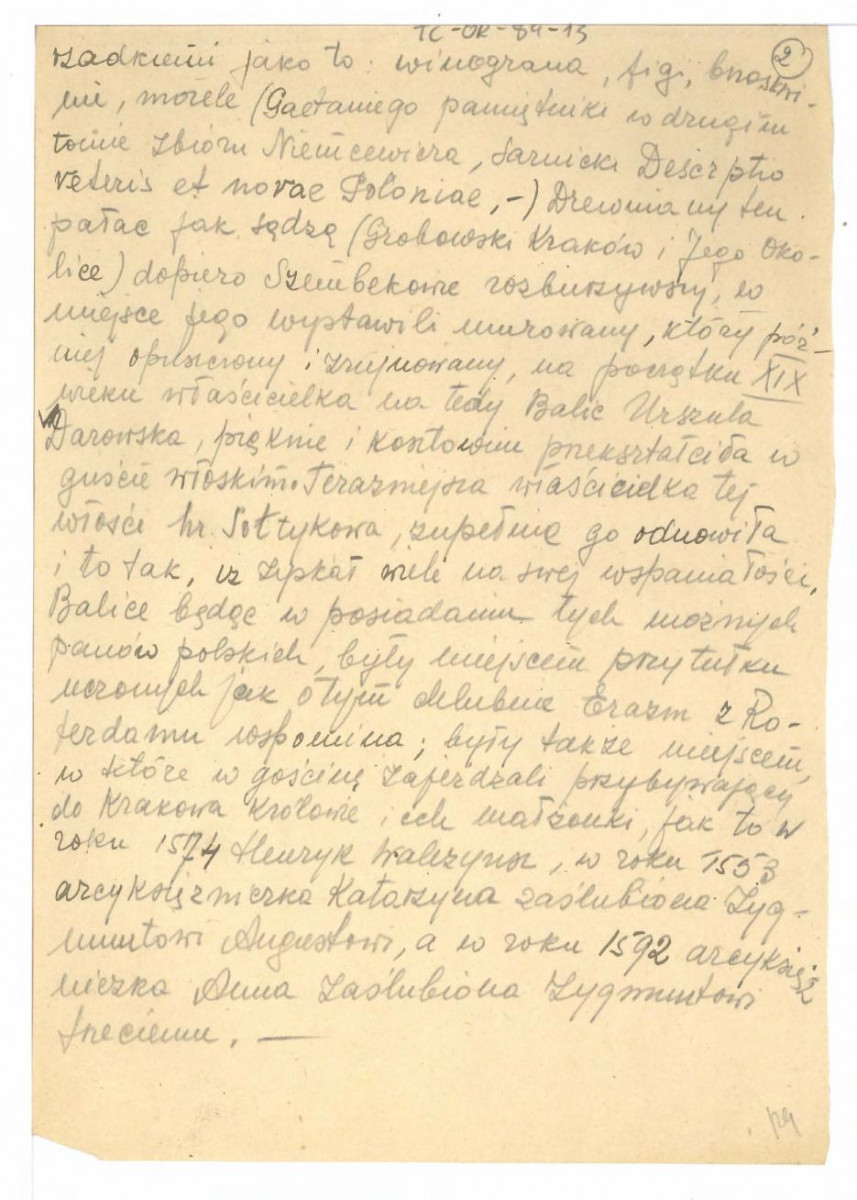 TC-OR-84-13
2
rzadkiemi jako to: winograna, figi, brzoskwi-
nie, morele (Gaetaniego pamiętniki w drugim
tomie zbioru Niemcewicza, Sarnicki Descrptio
veteris et novae Poloniae,-) Drewniany ten
pałac jak sądzą (Grobowski Kraków i Jego Oko-
lice) dopiero Szembekowie rozburzywszy, w
miejsce jego wystawili murowany, który póź-
niej opuszczony i zrujnowany, na początku XIX
wieku właścicielka na tedy Balic Urszula
Darowska, pięknie i kosztownie przekształciła w
guście włoskim. Terazniejsza właścicielka tej
włości hr. Sołtykowa, zupełnie go odnowiła
i to tak, iz zyskał wiele na swej wspaniałości,
Balice będąc w posiadaniu tych możnych
panów polskich, były miejscem przytułku
uczonych jak o tym chlubnie Erazm z Ro-
terdamu wspomina; były także miejscem,
w które w gościnę zajeżdzali przybywający
do Krakowa królowie i ich małżonki, jak to w
roku 1574 Henryk Walezyusz, w roku 1553
arcyksiężniczka Katarzyna zaślubiona Zyg-
muntowi Augustowi, a w roku 1592 arcyksięż
niczka Anna zaślubiona Zygmuntowi
trzeciemu. —